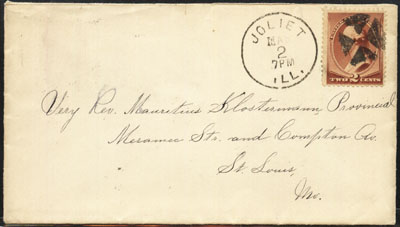 JOLIET
MAR
2
7PM
ILL.
TWO 2 CENTS
Very Rev. Mauritius Klostermann, Provincial
Meramec Sts. and Compton Av.
St. Louis,
Mo.